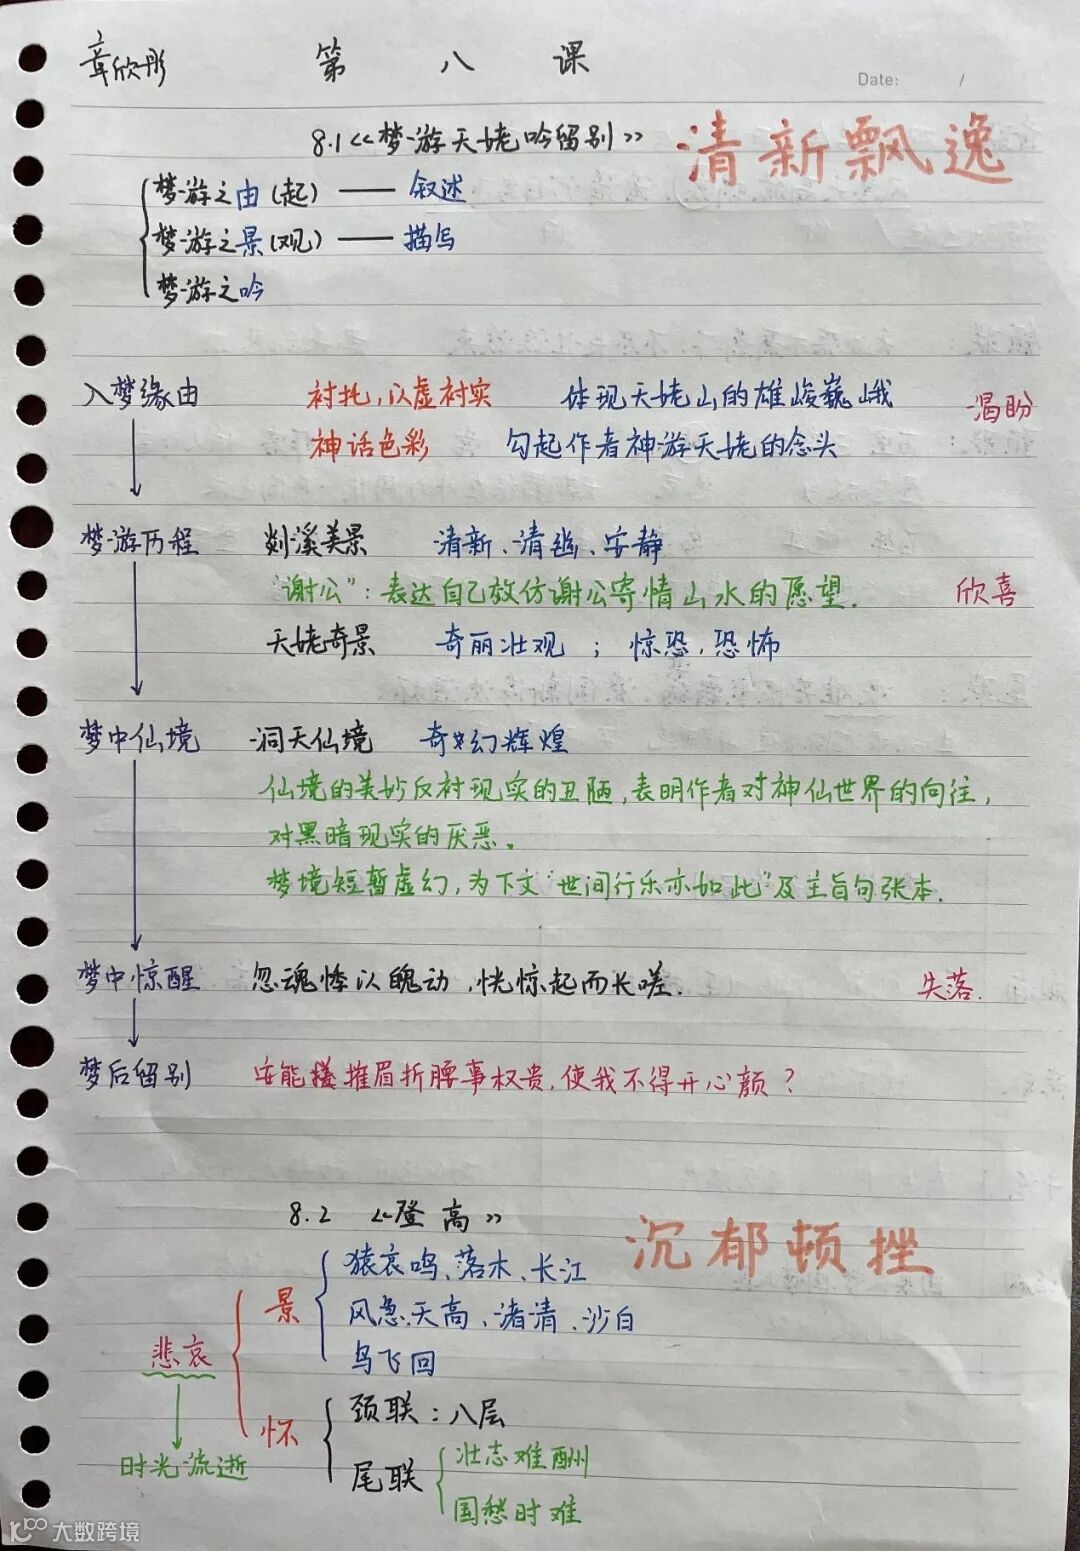 章欣彤 第八课
Date: /
8.1《梦游天姥吟留别》 清新飘逸
梦游之由(起) —— 叙述
梦游之景(观) —— 描写
梦游之吟
入梦缘由 衬托,以虚衬实 体现天姥山的雄峻巍峨 渴盼
神话色彩 勾起作者神游天姥的念头
梦游历程 剡溪美景 清新、清幽、安静
"谢公":表达自己效仿谢公寄情山水的愿望. 欣喜
天姥奇景 奇丽壮观 ; 惊恐,恐怖
梦中仙境 洞天仙境 奇幻辉煌
仙境的美妙反衬现实的丑陋,表明作者对神仙世界的向往,
对黑暗现实的厌恶。
梦境短暂虚幻,为下文"世间行乐亦如此"及主旨句张本.
梦中惊醒 忽魂悸以魄动,恍惊起而长嗟. 失落.
梦后留别 安能摧眉折腰事权贵,使我不得开心颜?
8.2 《登高》 沉郁顿挫
猿哀鸣、落木、长江
景 风急、天高、渚清、沙白
悲哀 鸟飞回
怀 颈联:八层
时光流逝 尾联 壮志难酬
国愁时难
大数跨境